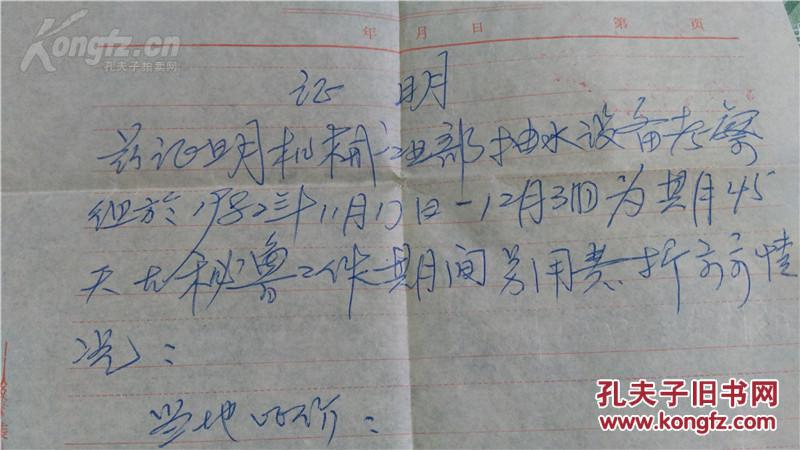 Kongfz.cn
孔夫子拍卖网
年 月 日 第 页
证 明
兹证明机械工业部抽水设备考察
组於1982年11月17日-12月31日为期45
天在秘鲁工作期间 费
况:
当地 价:
孔夫子旧书网
www.kongfz.com